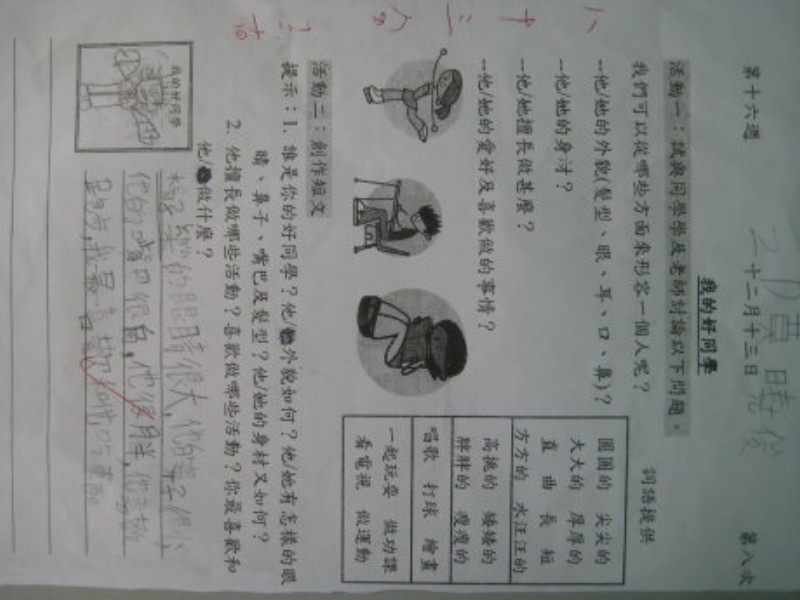 第十六週 十二月十三日 第八次
2 陳曉俊
我的好同學
活動一：試與同學及老師討論以下問題。
我們可以從哪些方面來形容一個人呢？
--他/她的外貌(髮型、眼、耳、口、鼻)？
--他/她的身材？
--他/她擅長做甚麼？
--他/她的愛好及喜歡做的事情？
詞語提供
圓圓的 尖尖的
大大的 厚厚的
直 曲 長 短
方方的 水汪汪的
高挑的 矮矮的
胖胖的 瘦瘦的
唱歌 打球 繪畫
一起玩耍 做功課
看電視 做運動
活動二：創作短文
提示：1. 誰是你的好同學？他/她外貌如何？他/她有怎樣的眼
睛、鼻子、嘴巴及髮型？他/她的身材又如何？
2. 他擅長做哪些活動？喜歡做哪些活動？你最喜歡和
他/她做什麼？
我的好同學
的眼睛很大，他的
他的嘴巴很白，他很胖，他喜歡
跑步，我最喜歡和他